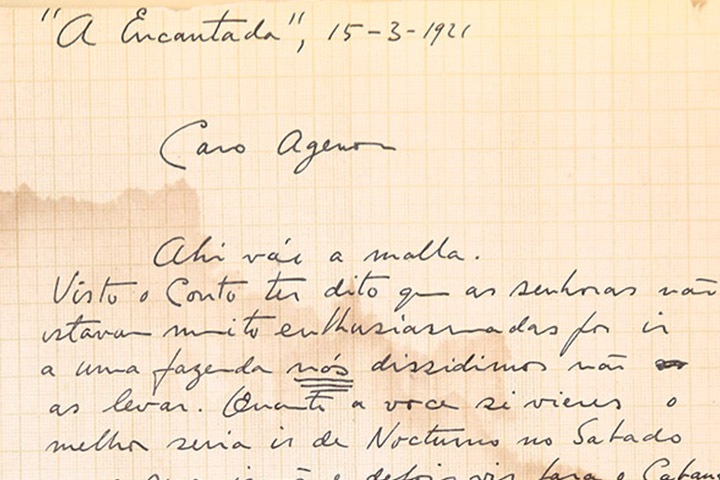 "A Encantada", 15-3-1921
Caro Agenor
Ahi váe a malla.
Visto o Couto ter dito que as senhoras não
estavam muito enthusiasmadas por ir
a uma fazenda nós dissidimos não
as levar. Quanto a voce si vieres o
melhor seria ir de Nocturno no Sabado
e depois vir para